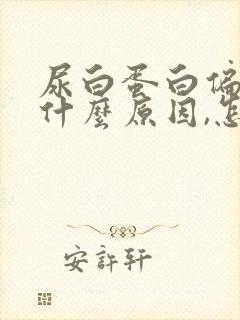 尿白蛋白偏
什麼原因,怎
安許軒